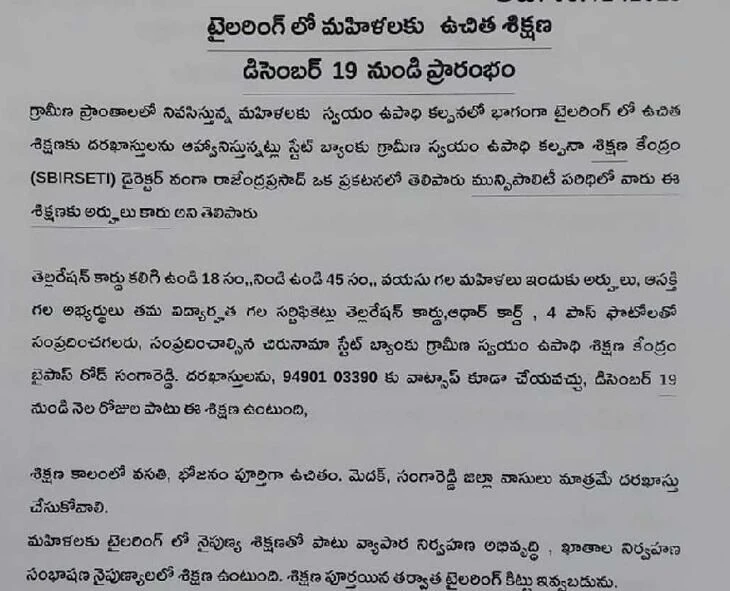 టైలరింగ్ లో మహిళలకు ఉచిత శిక్షణ
డిసెంబర్ 19 నుండి ప్రారంభం
గ్రామీణ ప్రాంతాలలో నివసిస్తున్న మహిళలకు స్వయం ఉపాధి కల్పనలో భాగంగా టైలరింగ్ లో ఉచిత
శిక్షణకు దరఖాస్తులను ఆహ్వానిస్తున్నట్లు స్టేట్ బ్యాంకు గ్రామీణ స్వయం ఉపాధి కల్పనా శిక్షణ కేంద్రం
(SBIRSETI) డైరెక్టర్ వంగా రాజేంద్రప్రసాద్ ఒక ప్రకటనలో తెలిపారు మున్సిపాలిటీ పరిధిలో వారు ఈ
శిక్షణకు అర్హులు కారు అని తెలిపారు
తెల్లరేషన్ కార్డు కలిగి ఉండి 18 సం,,నిండి ఉండి 45 సం,, వయసు గల మహిళలు ఇందుకు అర్హులు, ఆసక్తి
గల అభ్యర్థులు తమ విద్యార్హత గల సర్టిఫికెట్లు తెల్లరేషన్ కార్డు,ఆధార్ కార్డ్ , 4 పాస్ ఫొటోలతో
సంప్రదించగలరు, సంప్రదించాల్సిన చిరునామా స్టేట్ బ్యాంకు గ్రామీణ స్వయం ఉపాధి శిక్షణ కేంద్రం
బైపాస్ రోడ్ సంగారెడ్డి. దరఖాస్తులను, 94901 03390 కు వాట్సాప్ కూడా చేయవచ్చు, డిసెంబర్ 19
నుండి నెల రోజుల పాటు ఈ శిక్షణ ఉంటుంది,
శిక్షణ కాలంలో వసతి, భోజనం పూర్తిగా ఉచితం. మెదక్, సంగారెడ్డి జిల్లా వాసులు మాత్రమే దరఖాస్తు
చేసుకోవాలి.
మహిళలకు టైలరింగ్ లో నైపుణ్య శిక్షణతో పాటు వ్యాపార నిర్వహణ అభివృద్ధి , ఖాతాల నిర్వహణ
సంభాషణ నైపుణ్యాలలో శిక్షణ ఉంటుంది. శిక్షణ పూర్తయిన తర్వాత టైలరింగ్ కిట్టు ఇవ్వబడును.